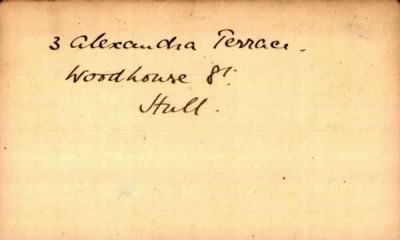 3 Alexandra Terrace.
Woodhouse St.
Hull.